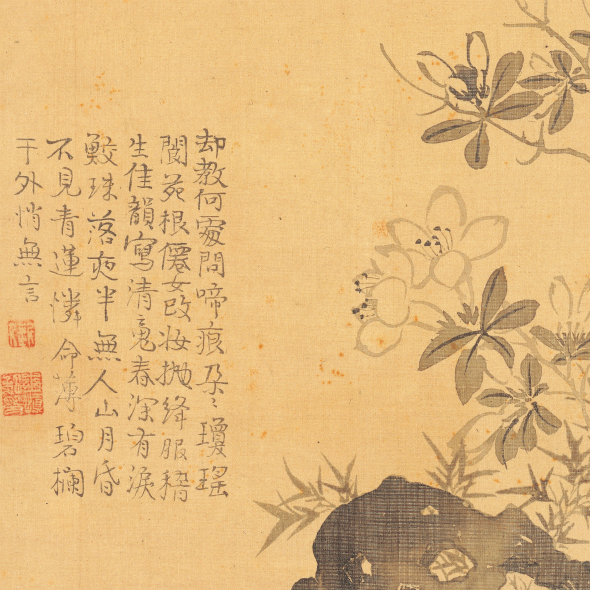 却教何處問啼痕朵〻瓊瑤
閬苑根僊女改妝拋絳服
生佳韻寫清魂春深有淚
鮫珠落夜半無人山月昏
不見青蓮憐命薄碧欄
干外悄無言